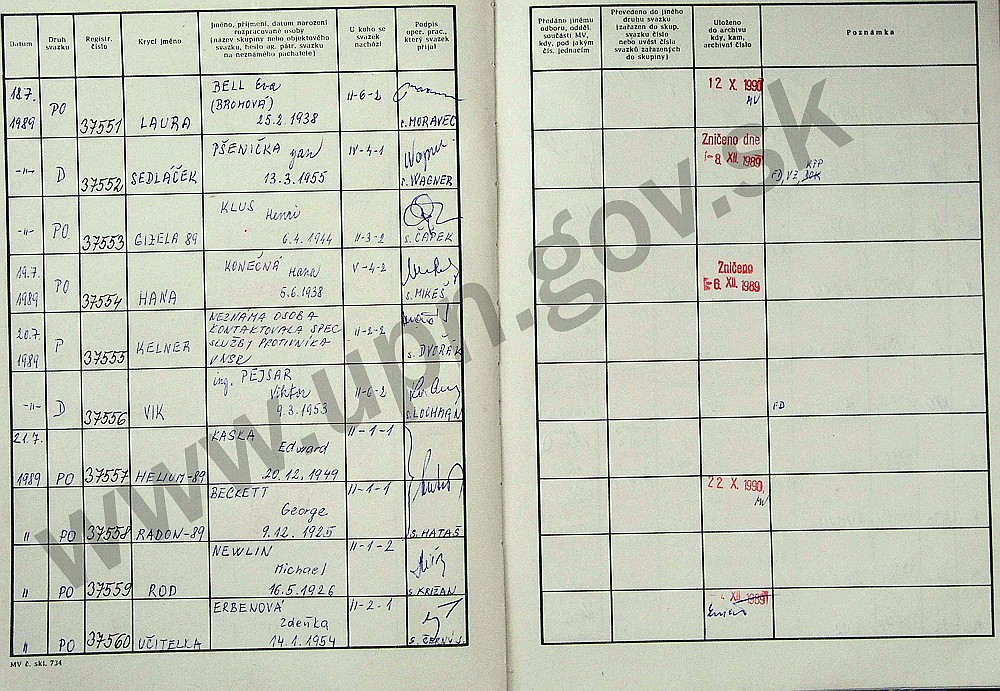 Datum
Druh svazku
Registr. číslo
Krycí jméno
Jméno, příjmení, datum narození
rozpracované osoby
(název skupiny nebo objektového
svazku, heslo ag. pátr. svazku
na neznámého pachatele)
U koho se
svazek
nachází
Podpis
oper. prac.,
který svazek
přijal
Předáno jinému
odboru, odděl.
součásti MV,
kdy, pod jakým
čís. jednacím
Převedeno do jiného
druhu svazku
(zařazen do skup.
svazku číslo
nebo uvést číslo
svazků zařazených
do skupiny)
Uloženo
do archivu
kdy, kam,
archivní číslo
Poznámka
18.7. 1989 PO 37551 LAURA
BELL Eva
(BROMOVÁ)
25.2.1938
II-6-2
s. MORAVEC
12 X. 1990
MV
-"- D 37552 SEDLÁČEK
PŠENIČKA Jan
13.3.1955
IV-4-1
s. WAGNER
Zničeno dne
-8. XII. 1989
KPP
FD, VZ,
-"- PO 37553 GIZELA 89
KLUS Henri
6.4.1944
II-3-2
s. ČAPEK
19.7. 1989 PO 37554 HANA
KONEČNÁ Hana
5.6.1938
V-4-2
s. MIKEŠ
Zničeno
-6. XII. 1989
20.7. 1989 P 37555 KELNER
NEZNÁMÁ OSOBA
KONTAKTOVALA SPEC
SLUŽBY PROTIVNÍKA
V NSR
II-2-2
s. DVOŘÁK
-"- D 37556 VIK
ing. PEJSAR
Viktor
9.3.1953
II-6-2
s. LOCHMAN
FD
21.7. 1989 PO 37557 HELIUM-89
KASKA
Edward
20.12.1949
II-1-1
" PO 37558 RADON-89
BECKETT
George
9.12.1925
II-1-1
s. HATAŠ
22 X. 1990,
MV
" PO 37559 ROD
NEWLIN
Michael
16.5.1926
II-1-2
s. KRIŽAN
" PO 37560 UČITELKA
ERBENOVÁ
Zdeňka
14.1.1954
II-2-1
s. ČERNÝ J.
XII. 1989
MV č. skl. 734
www.upn.gov.sk